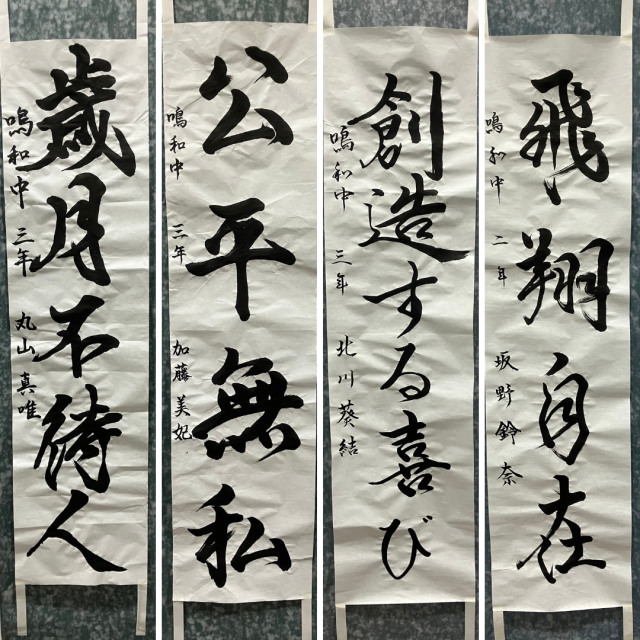 歳月不待人
鳴和中 三年 丸山 真唯
公平無私
鳴和中 三年 加藤美妃
創造する喜び
鳴和中 三年 北川葵結
飛翔自在
鳴和中 二年 坂野鈴奈